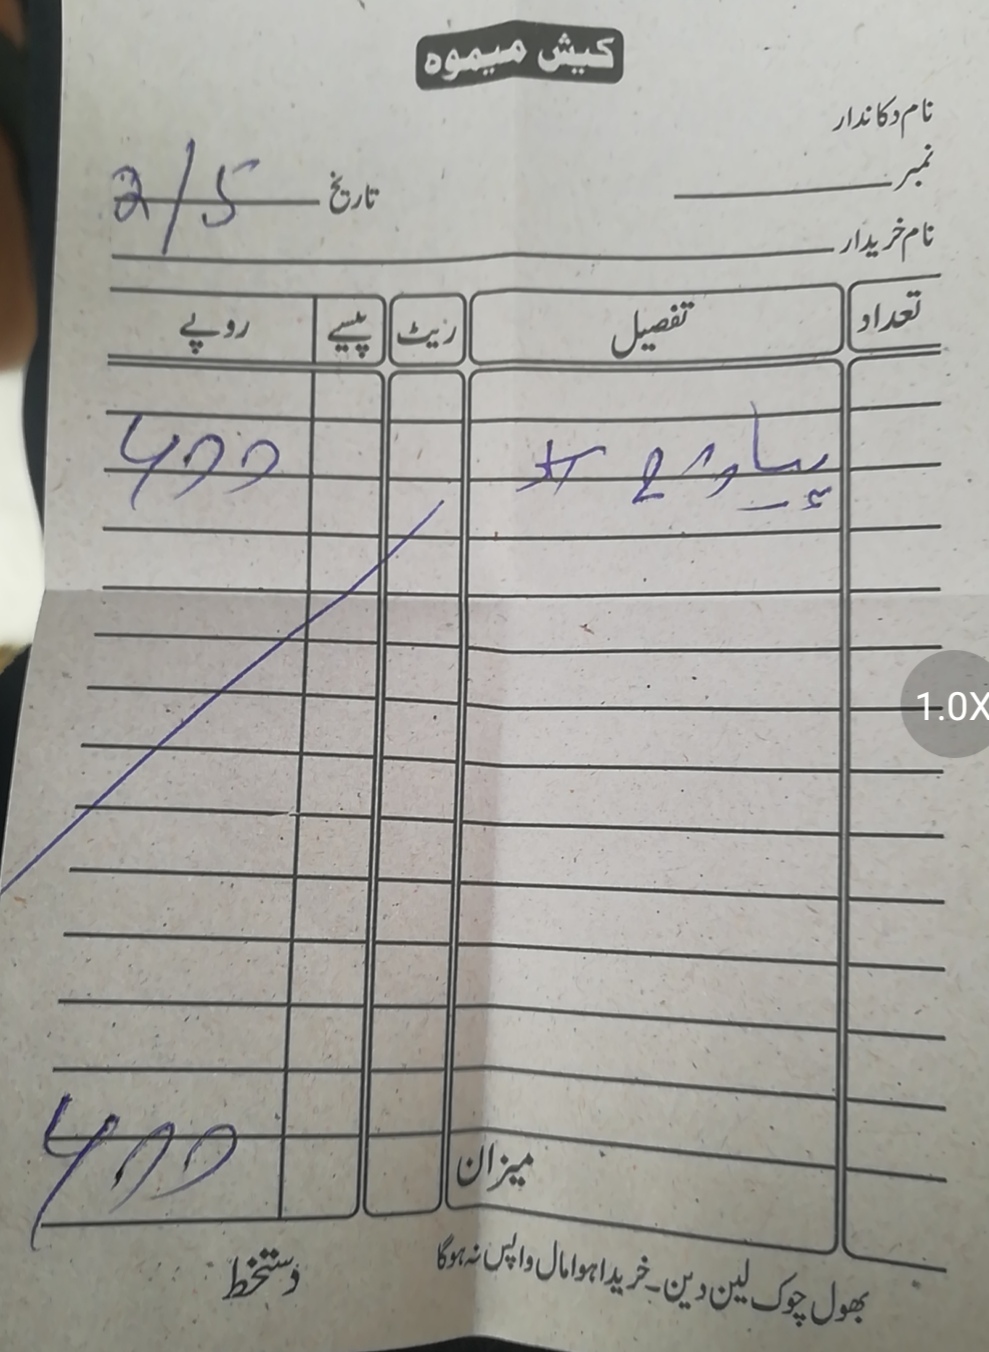 کیش میموہ
نام دکاندار
نمبر
تاریخ 2/5
نام خریدار
تعداد تفصیل ریٹ پیسے روپے
400
میزان 400
بھول چوک لین دین۔ خریدا ہوا مال واپس نہ ہوگا
دستخط
1.0X